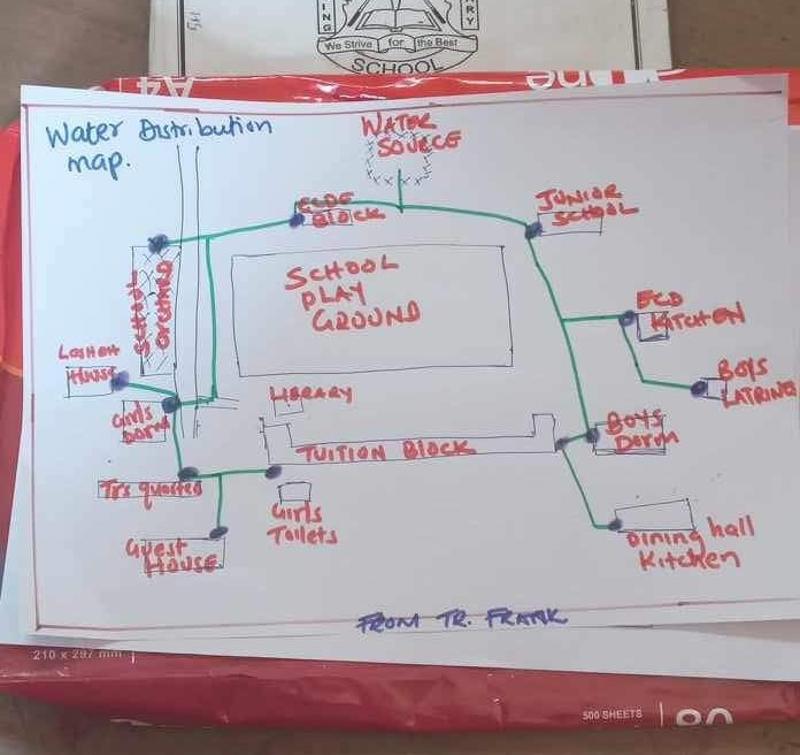 ING
ARY
We Strive for the Best
SCHOOL
A4
Water Distribution
map.
WATER
SOURCE
ECDE
BLOCK
JUNIOR
SCHOOL
SCHOOL
ORCHARD
SCHOOL
PLAY
GROUND
ECD
KITCHEN
House
BOYS
LATRINE
LIBRARY
Girls
Dorm
BOYS
Dorm
TUITION BLOCK
Trs quarters
Girls
Toilets
Guest
HOUSE
Dining hall
Kitchen
FROM TR. FRANK
210 x 297 mm
500 SHEETS
80